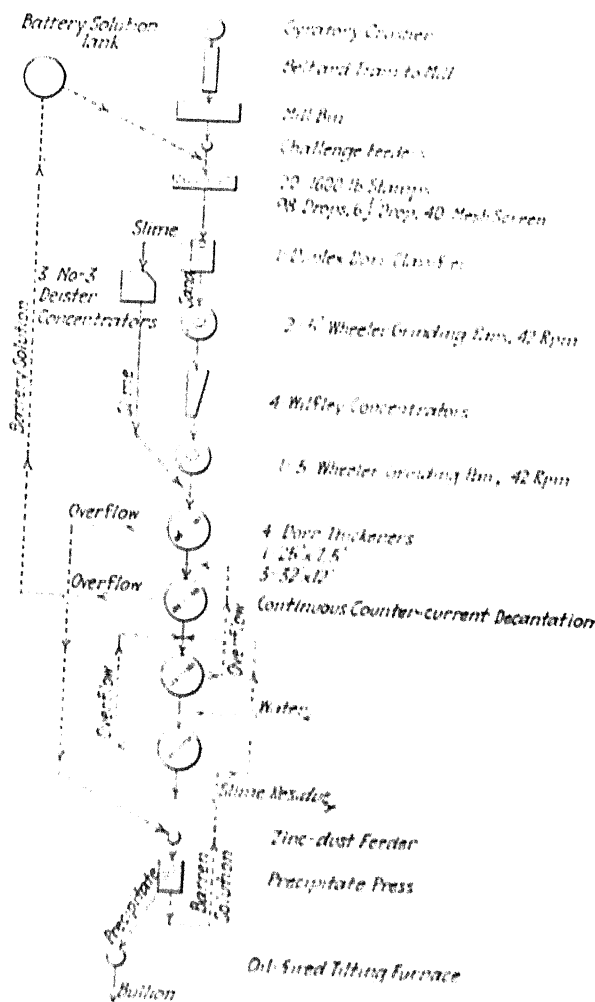 Battery Solution
Tank
Gyratory Crusher
Belt and Tram to Mill
Mill Bin
Challenge Feeders
20-1600 lb Stamps
98 Drops, 6½" Drop, 40 Mesh Screen
Slime
1-Duplex Dorr Classifier
3 No-3
Deister
Concentrators
Sand
2-5' Wheeler Grinding Pans, 42 Rpm
Battery Solution
Slime
4 Wilfley Concentrators
1-5' Wheeler Grinding Pan, 42 Rpm
Overflow
4 Dorr Thickeners
Overflow
Continuous Counter-current Decantation
Overflow
Overflow
Water
Slime Residue
Zinc-dust Feeder
Precipitate
Barren
Solution
Precipitate Press
Oil-Fired Tilting Furnace
Bullion